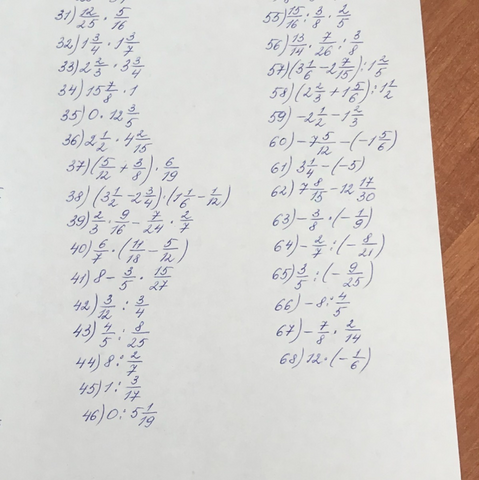 31) 12/25 · 5/16
32) 1 3/4 · 1 3/7
33) 2 2/3 · 3 3/4
34) 15 7/8 · 1
35) 0 · 12 3/5
36) 2 1/2 · 4 2/15
37) (5/12 + 3/8) · 6/19
38) (3 1/2 - 2 3/4) · (1 1/6 - 1/12)
39) 2/3 · 9/16 - 7/24 · 2/7
40) 6/7 · (11/18 - 5/12)
41) 8 - 3/5 · 15/27
42) 3/12 : 3/4
43) 4/5 : 8/25
44) 8 : 2/7
45) 1 : 3/17
46) 0 : 5 1/19
55) 15/16 : 3/8 · 2/5
56) 13/14 · 7/26 : 3/8
57) (3 1/6 - 2 7/15) : 1 2/5
58) (2 2/3 + 1 5/6) : 1 1/2
59) - 2 1/2 - 1 2/3
60) - 7 5/12 - (- 1 5/6)
61) 3 1/4 - (-5)
62) 7 8/15 - 12 17/30
63) - 3/8 · (- 1/9)
64) - 2/7 : (- 8/21)
65) 3/5 : (- 9/25)
66) - 8 : 4/5
67) - 7/8 · 2/14
68) 12 · (- 1/6)